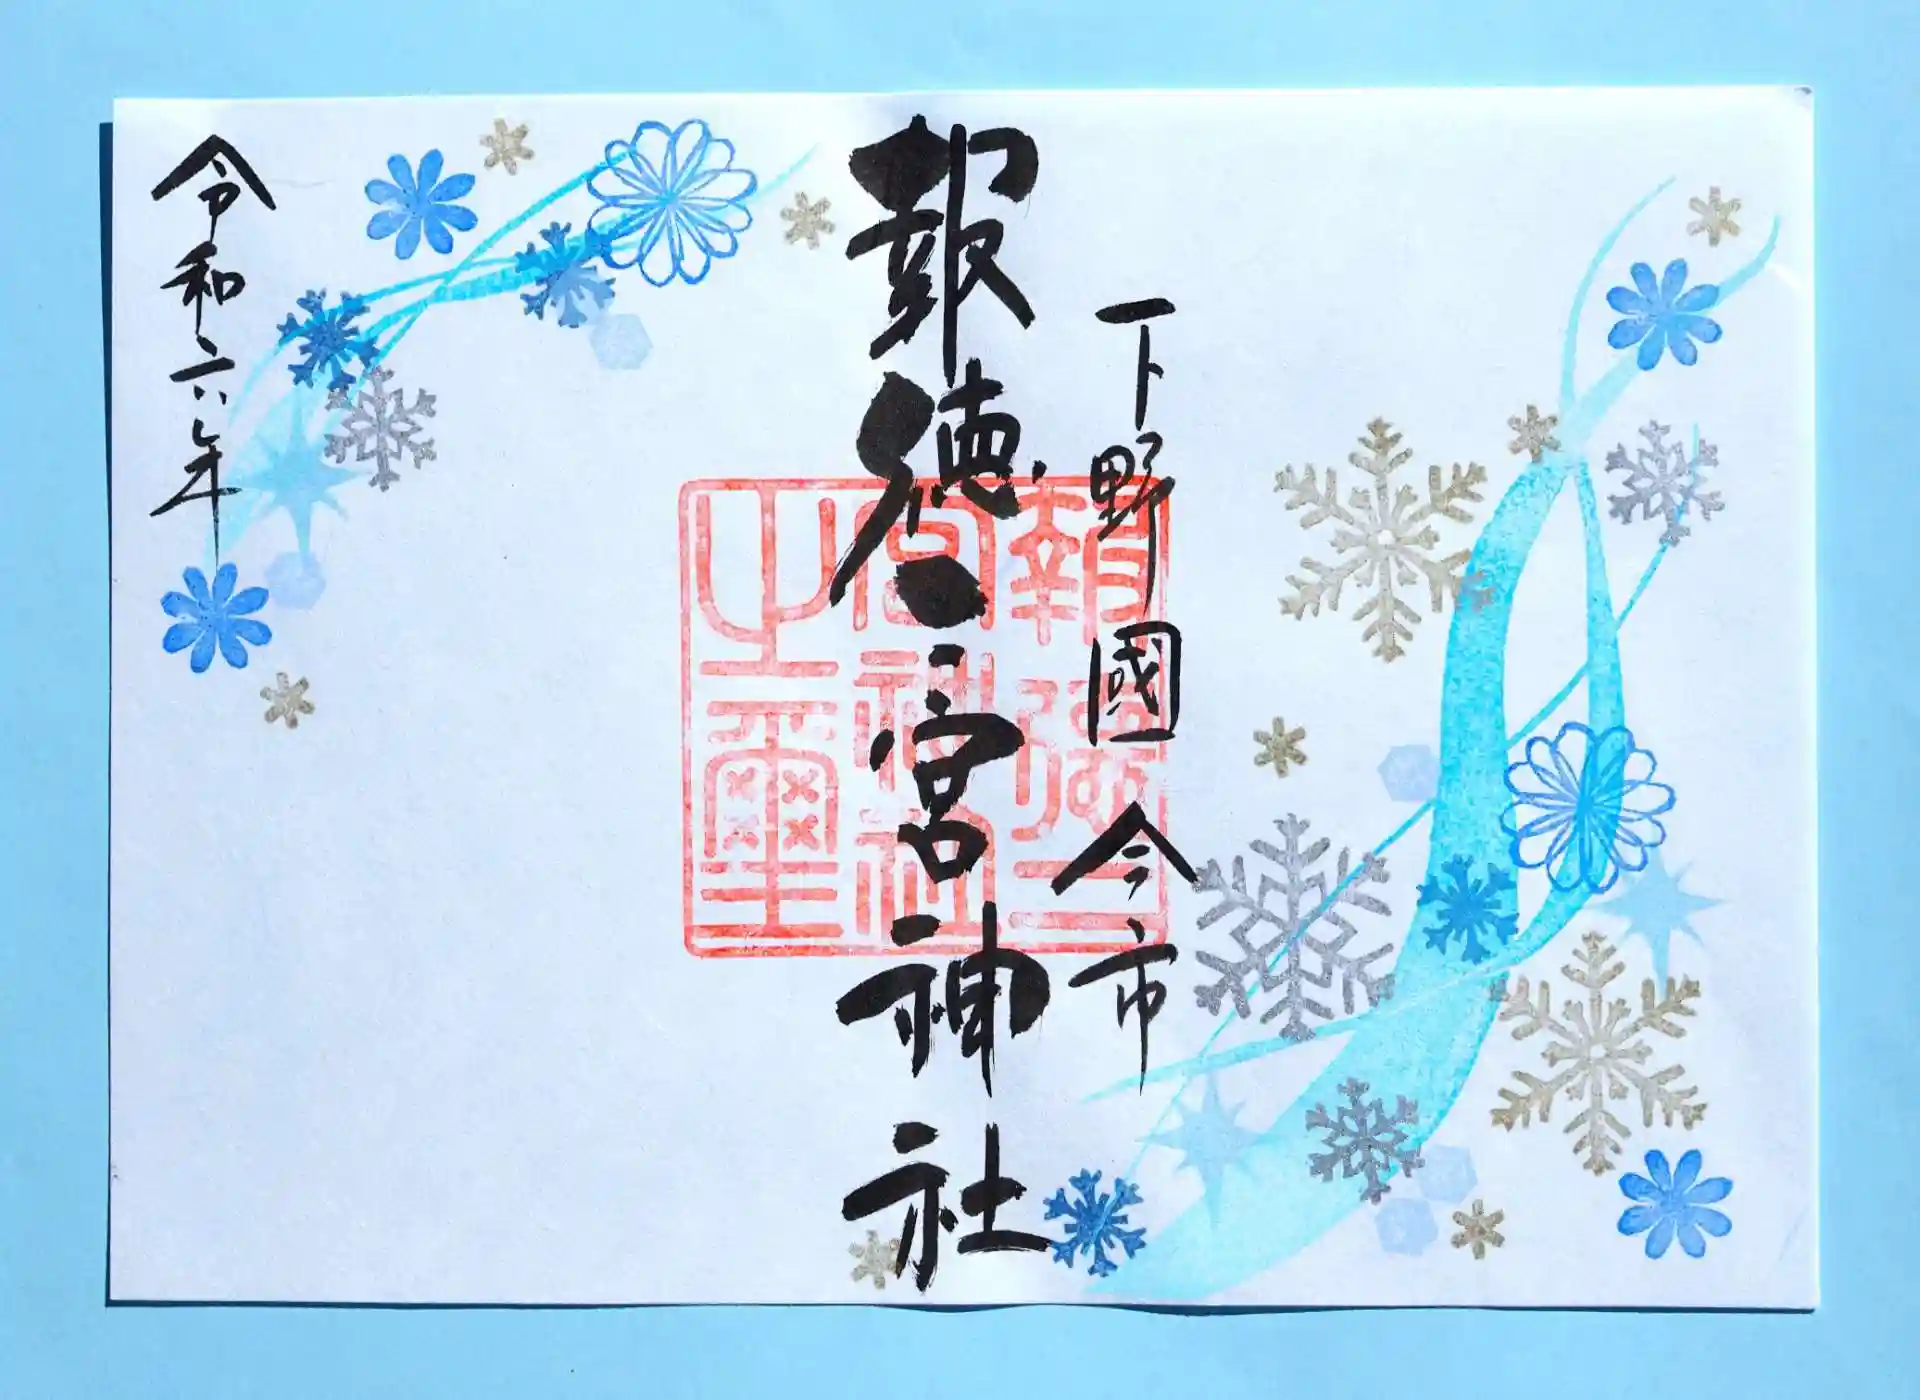 下野國今市
報徳二宮神社
報徳二
宮神社
之璽
令和六年